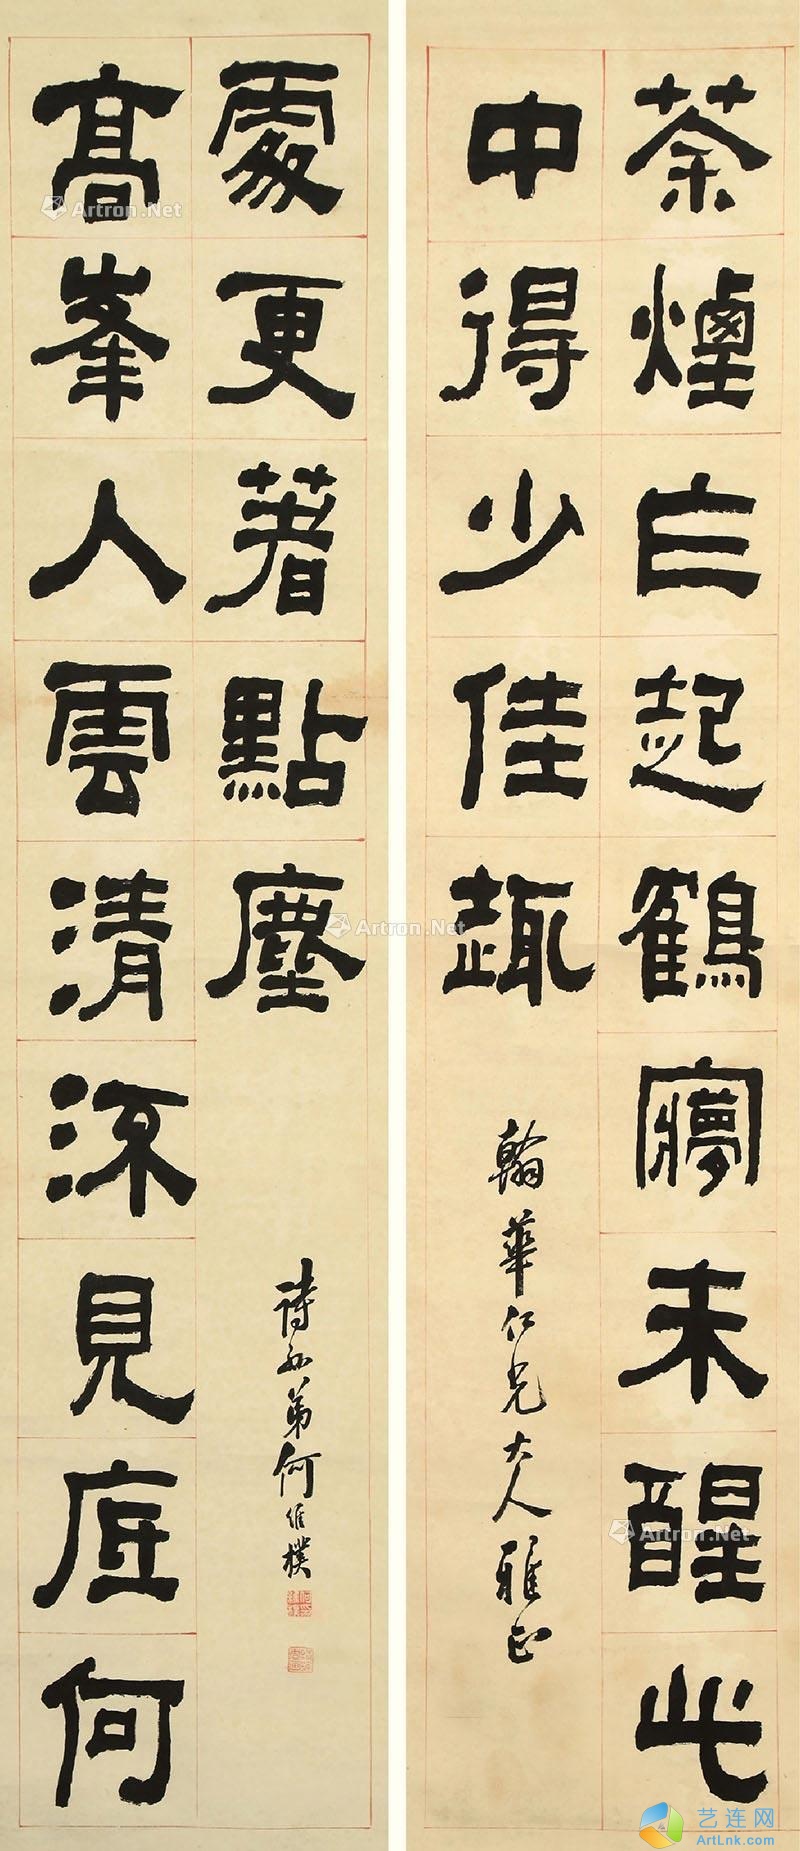 茶煙乍起鶴夢未醒此
中得少佳趣
翰華仁兄大人雅正
高峯入雲清流見底何
處更著點塵
詩孫弟何維樸
Artron.Net
Artron.Net
Artron.Net
艺连网
ArtLnk.com